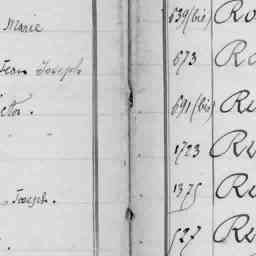 Marie
Jean Joseph
Joseph.
639 (bis) Ro
673 Ro
691 (bis) Re
1723 Re
1375 Re
527 Re